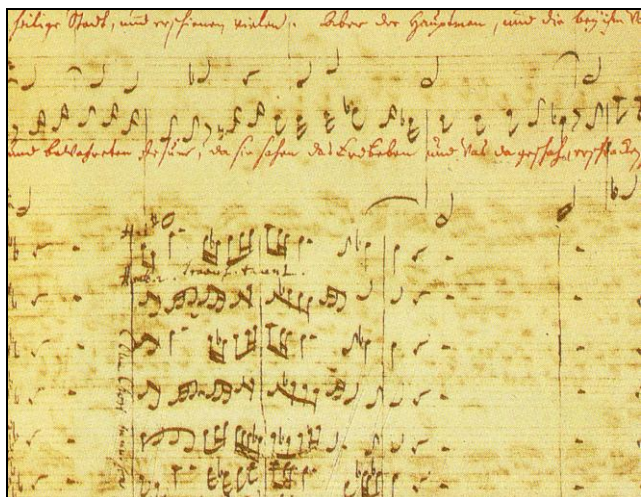 heilige Stadt, und erschienen vielen. Aber der Hauptman, und die bey ihm
und bewahreten Jesum, da sie sahen das Erdbeben und was da geschah, erschracken